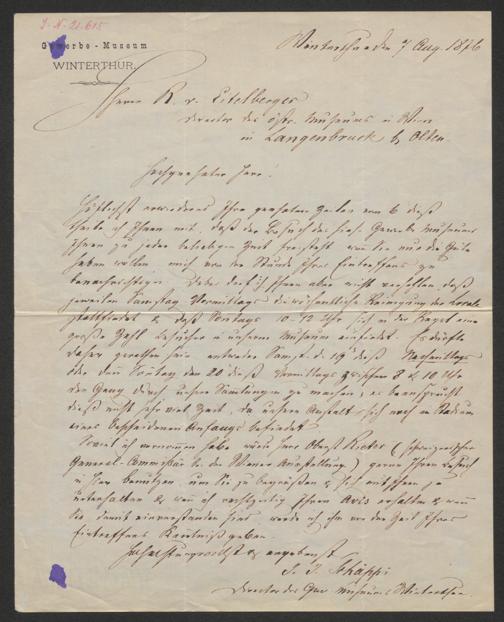 J. N. 21.615
Gewerbe-Museum
WINTERTHUR.
Winterthur den 7 Aug. 1876
Herrn R. v. Eitelberger
Director des östr. Museums in Wien
in Langenbruck b/ Olten.
Hochgeehrter Herr!
Höflichst erwiedernd Ihre geehrten Zeilen vom 6 dieß
theile ich Ihnen mit, daß der Besuch des hies. Gewerbe Museums
Ihnen zu jeder beliebigen Zeit freisteht wenn Sie nur die Güte
haben wollen mich von der Stunde Ihres Eintreffens zu
benachrichtigen. Dabei darf ich Ihnen aber nicht verhehlen, daß
jeweilen Samstag Vormittags die wöchentliche Reinigung der Locale
stattfindet & daß Sontags 10-12 Uhr sich in der Regel eine
große Zahl Besucher in unserm Museum einfindet. Es dürfte
daher gerathen sein entweder Samst. d. 19 dieß Nachmittags
oder den Sontag den 20 dieß Vormittags zwischen 8 & 10 Uhr
den Gang durch unsere Samlungen zu machen; es beansprucht
dieß nicht sehr viel Zeit, da unsere Anstalt sich noch im Stadium
eines bescheidenen Anfangs befindet.
Soviel ich vernommen habe würde Herr Oberst Rieter (schweizerischer
General-Commissär der Wiener Ausstellung) gerne Ihren Besuch
in hier benützen um Sie zu begrüßen & sich mit Ihnen zu
unterhalten & wenn ich rechtzeitig Ihren Avis erhalte & wenn
Sie damit einverstanden sind werde ich ihm von der Zeit Ihres
Eintreffens Kenntniß geben.
Hochachtungsvollst & ergebenst
Director des Gew. Museums Winterthur.